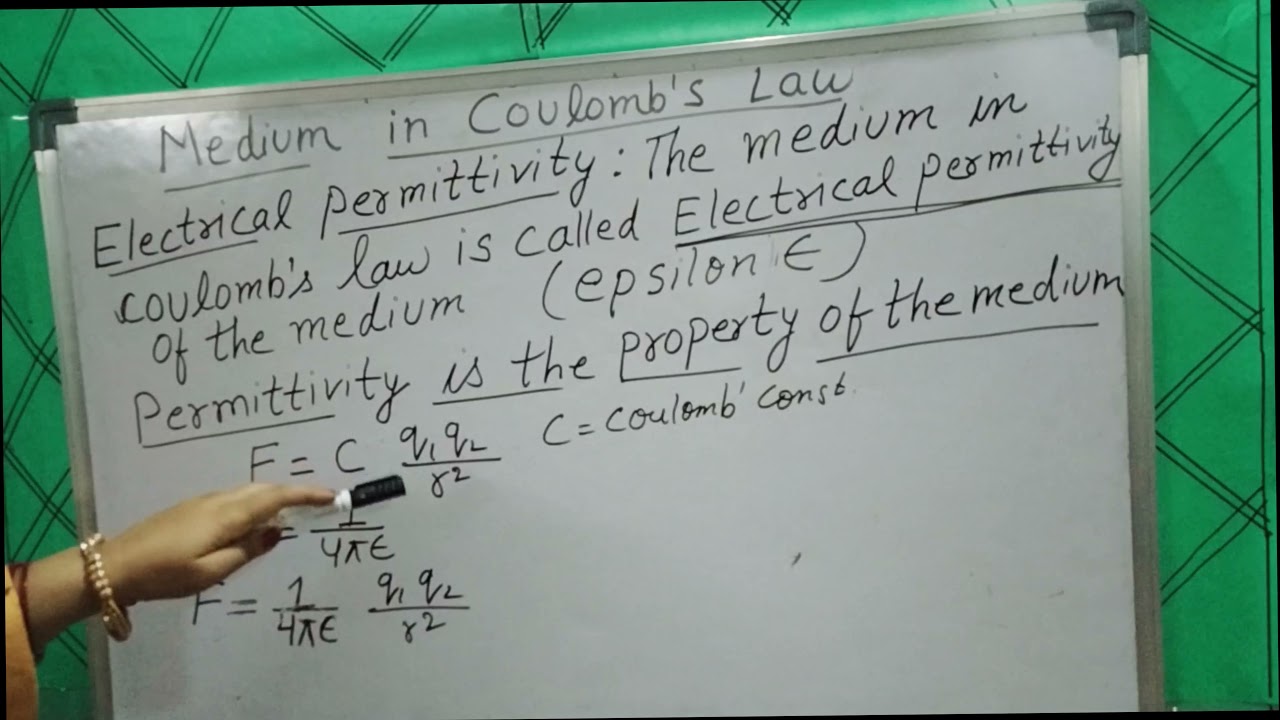 Medium in Coulomb's Law
Electrical Permittivity : The medium in
coulomb's law is called Electrical permittivity
of the medium (epsilon ∈)
Permittivity is the property of the medium
F = C q₁q₂/r² C = coulomb' const.
= 1/4π∈
F = 1/4π∈ q₁q₂/r²